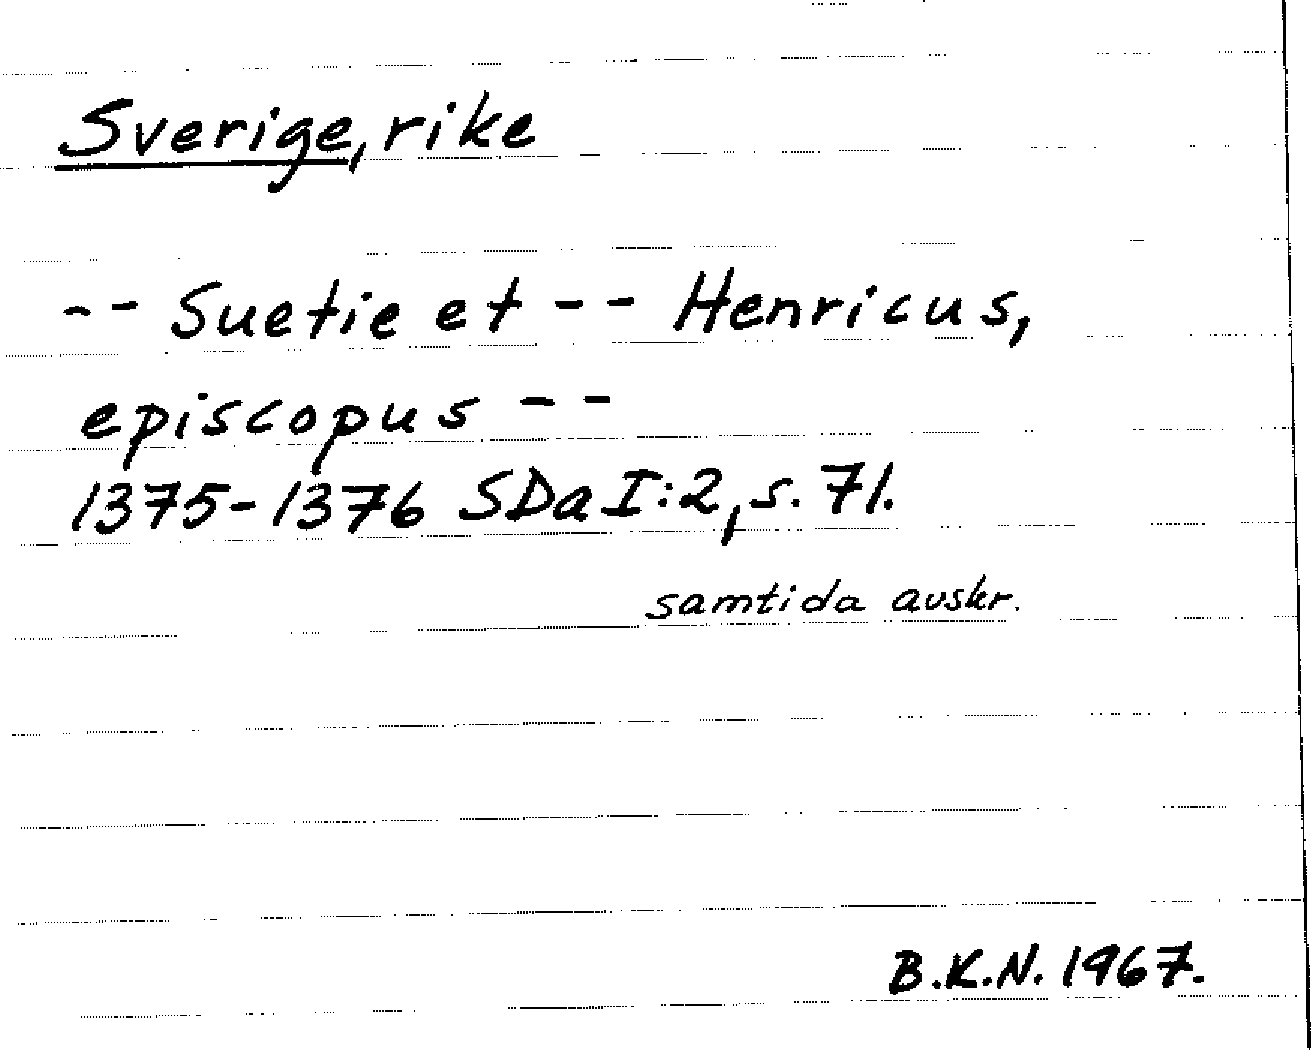 Sverige, rike
-- Suetie et -- Henricus,
episcopus --
1375-1376 SDa I:2, s. 71.
samtida avskr.
B.K.N. 1967.